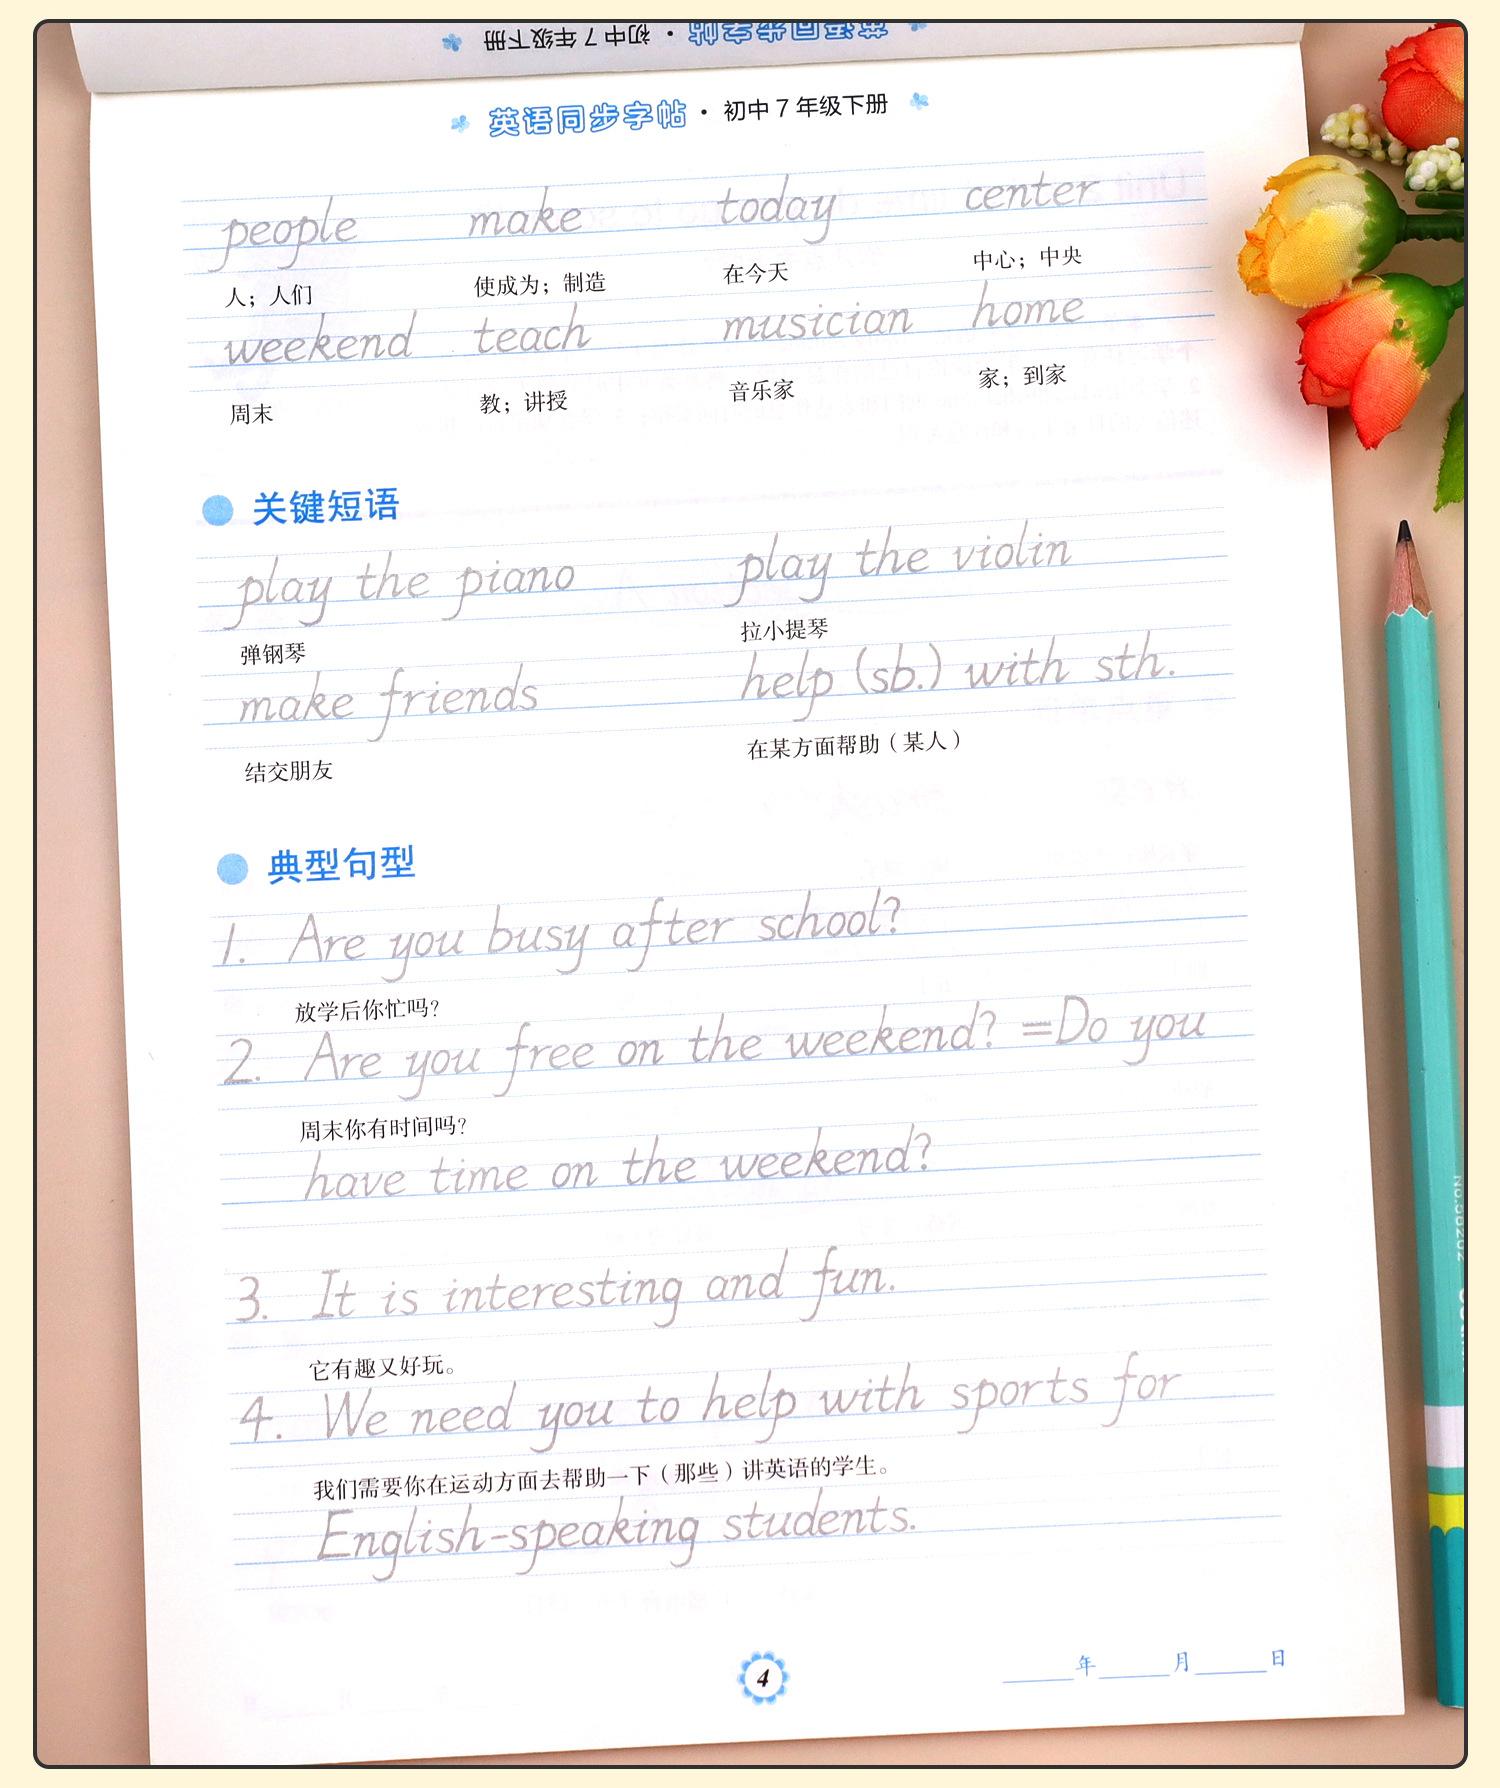 英语同步字帖·初中7年级下册
英语同步字帖·初中7年级下册
people make today center
人；人们 使成为；制造 在今天 中心；中央
weekend teach musician home
周末 教；讲授 音乐家 家；到家
关键短语
play the piano play the violin
弹钢琴 拉小提琴
make friends help (sb.) with sth.
结交朋友 在某方面帮助（某人）
典型句型
1. Are you busy after school?
放学后你忙吗？
2. Are you free on the weekend? =Do you
周末你有时间吗？
have time on the weekend?
3. It is interesting and fun.
它有趣又好玩。
4. We need you to help with sports for
我们需要你在运动方面去帮助一下（那些）讲英语的学生。
English-speaking students.
4
年 月 日